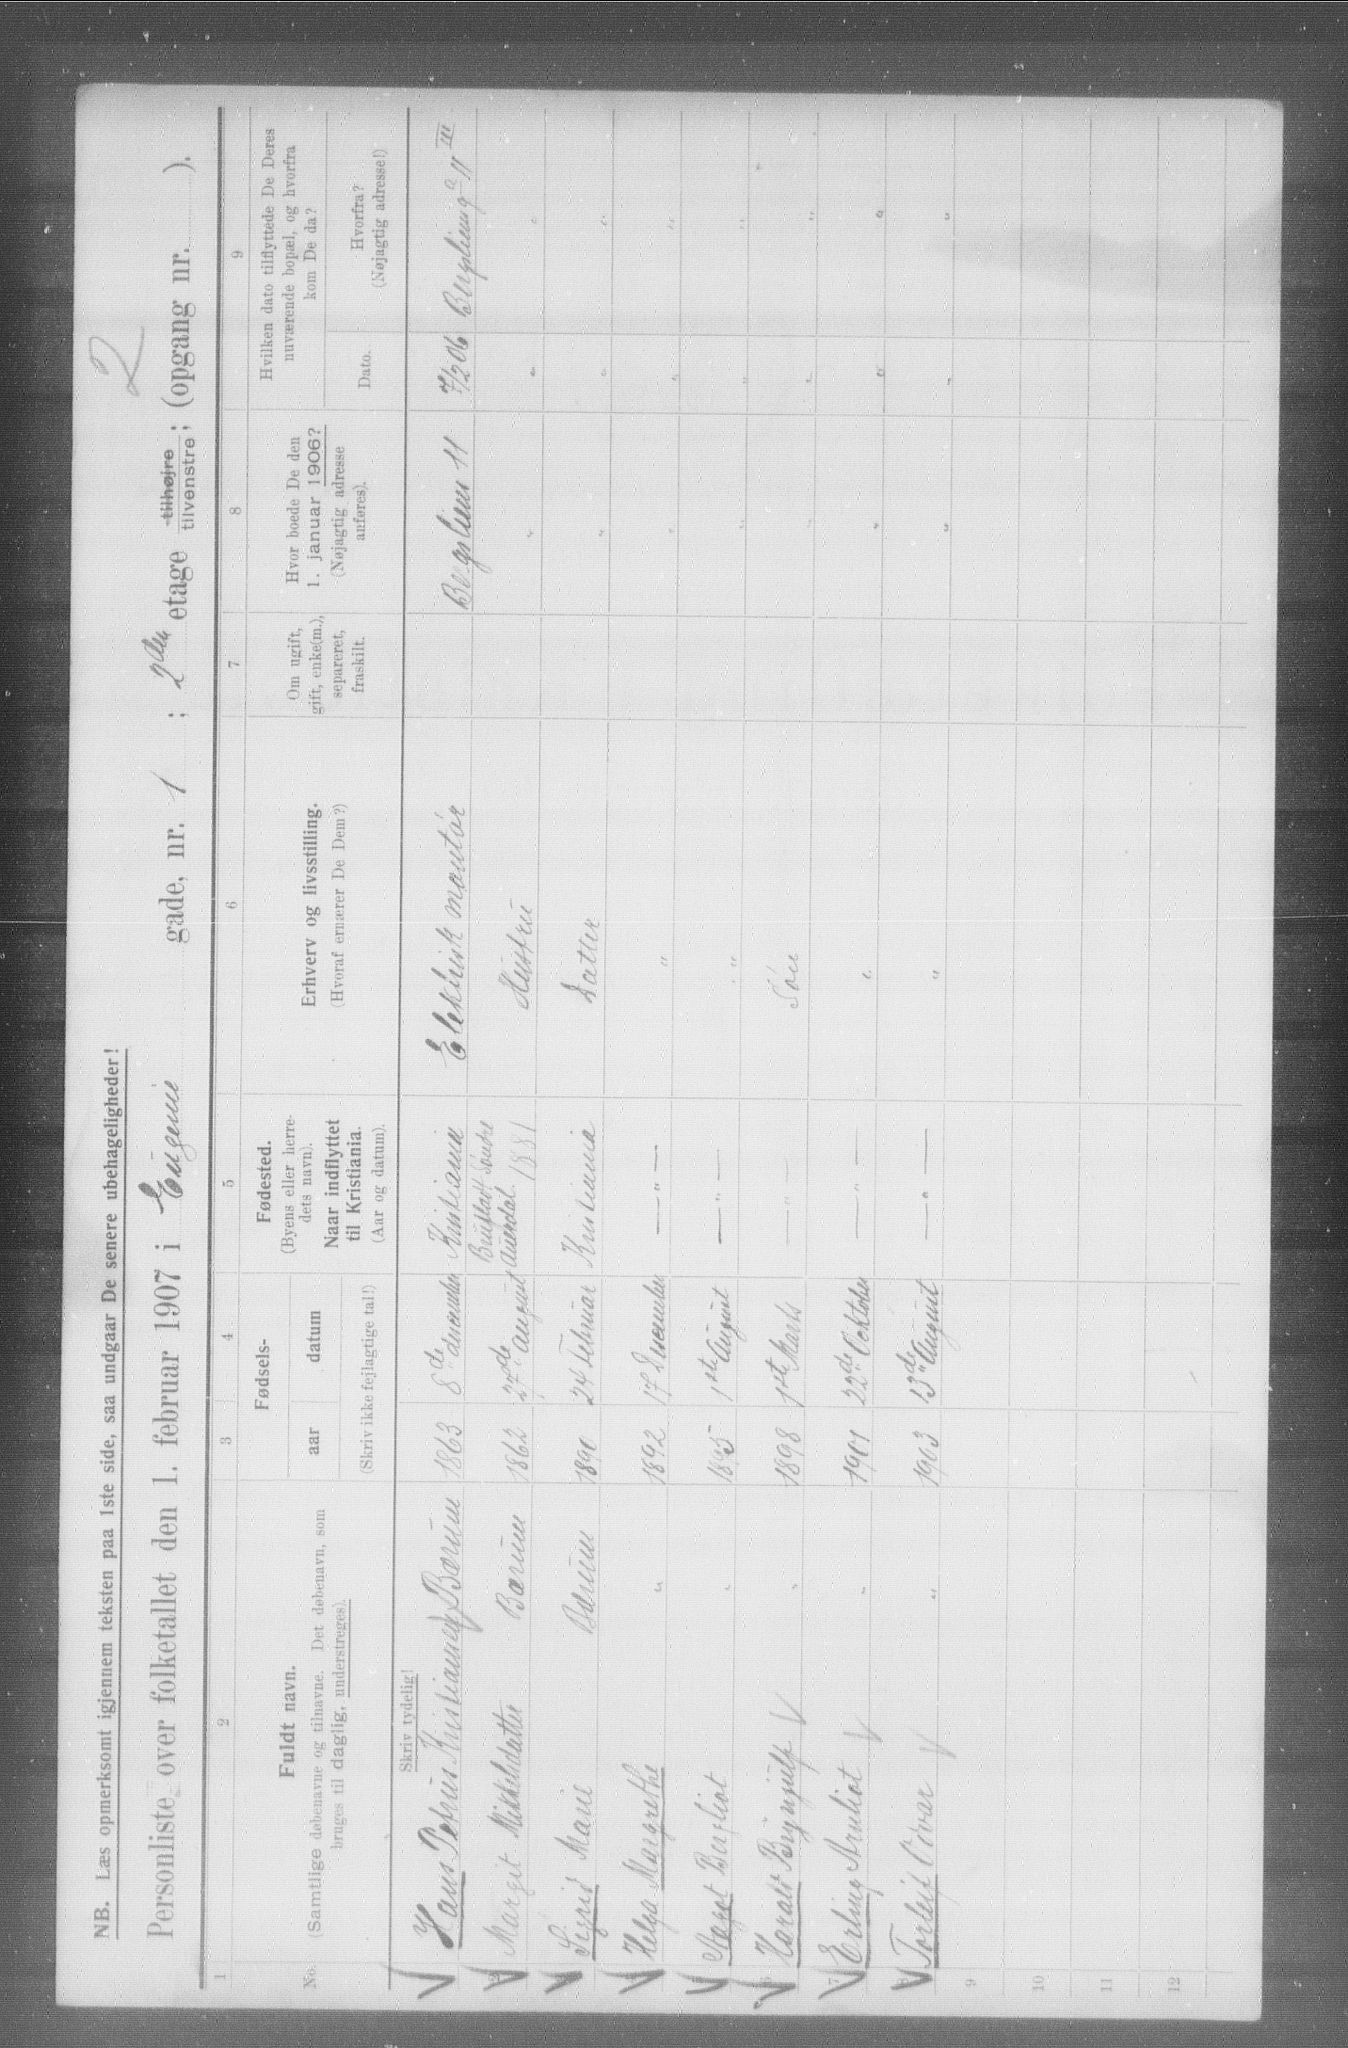 2
NB. Læs opmerksomt igjennem teksten paa 1ste side, saa undgaar De senere ubehageligheder!
Personliste over folketallet den 1. februar 1907 i Eugenie gade, nr. 1 ; 2den etage tilhøjre tilvenstre; (opgang nr. ).
1 2 3 4 5 6 7 8 9
No. Fuldt navn. (Samtlige døbenavne og tilnavne. Det døbenavn, som bruges til daglig, understreges).
Fødsels- aar datum (Skriv ikke fejlagtige tal!)
Fødested. (Byens eller herredets navn). Naar indflyttet til Kristiania. (Aar og datum).
Erhverv og livsstilling. (Hvoraf ernærer De Dem?)
Om ugift, gift, enke(m.), separeret, fraskilt.
Hvor boede De den 1. januar 1906? (Nøjagtig adresse anføres).
Hvilken dato tilflyttede De Deres nuværende bopæl, og hvorfra kom De da?
Dato. Hvorfra? (Nøjagtig adresse!)
Skriv tydelig!
Hans Petrus Kristiansen Bærum 1863 8de december Kristiania Elektrisk montör Bergslien 11 7/2 06 Bergslieng 11 III
2 Margit Mikkelsdatter Bærum 1862 27de august Söndre Aurdal. 1881 Hustru " " "
Sigrid Marie Bærum 1890 24 Februar Kristiania Datter " " "
Helga Margrethe " 1892 17 December — " — " " " "
Bergliot " 1895 1ste August — " — " " " "
6 Harald Brynjulf " 1898 1ste Marts — " — Sön " " "
7 Erling Arnliot " 1901 22de Oktober — " — " " " "
8 Torleif Odvar " 1903 13de August — " — " " " "
9
10
11
12